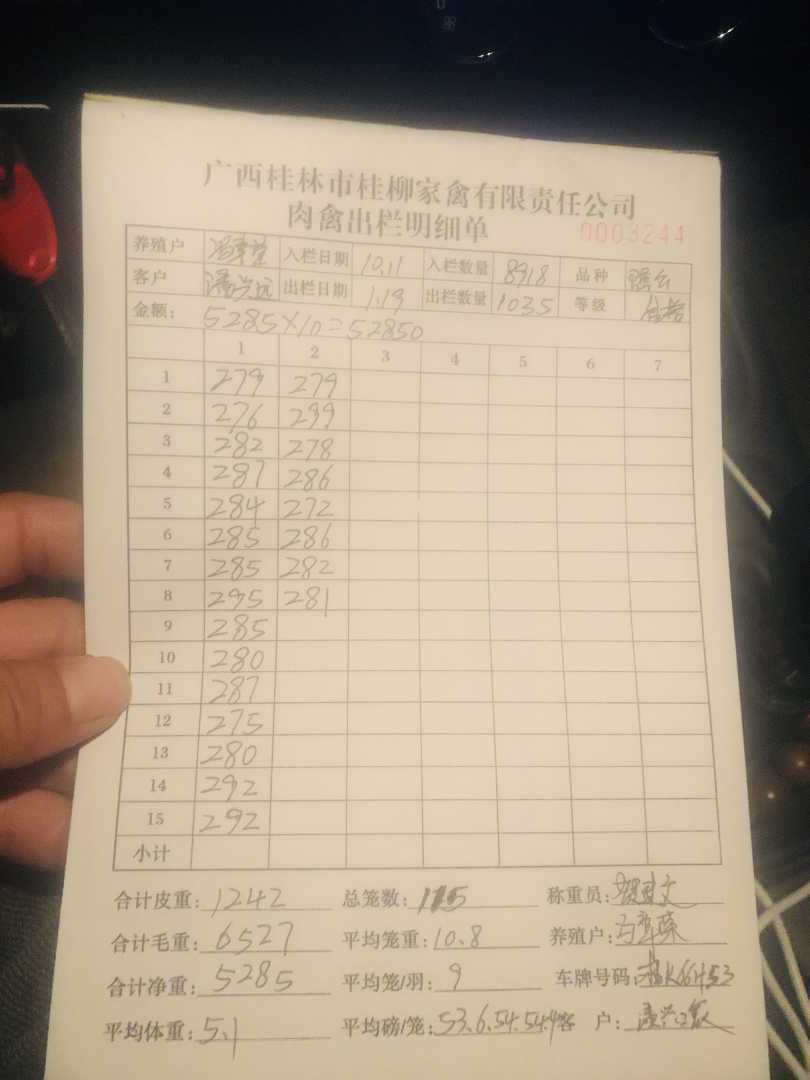 广西桂林市桂柳家禽有限责任公司
肉禽出栏明细单 0003244
养殖户 入栏日期 10.11 入栏数量 8918 品种
客户 潘兴远 出栏日期 1.19 出栏数量 1035 等级
金额: 5285×10=52850
1 2 3 4 5 6 7
1 279 279
2 276 299
3 282 278
4 287 286
5 284 272
6 285 286
7 285 282
8 295 281
9 285
10 280
11 287
12 275
13 280
14 292
15 292
小计
合计皮重: 1242 总笼数: 115 称重员:
合计毛重: 6527 平均笼重: 10.8 养殖户:
合计净重: 5285 平均笼/羽: 9 车牌号码:
平均体重: 5.1 平均磅/笼: 53.6.54.54.9 客 户: